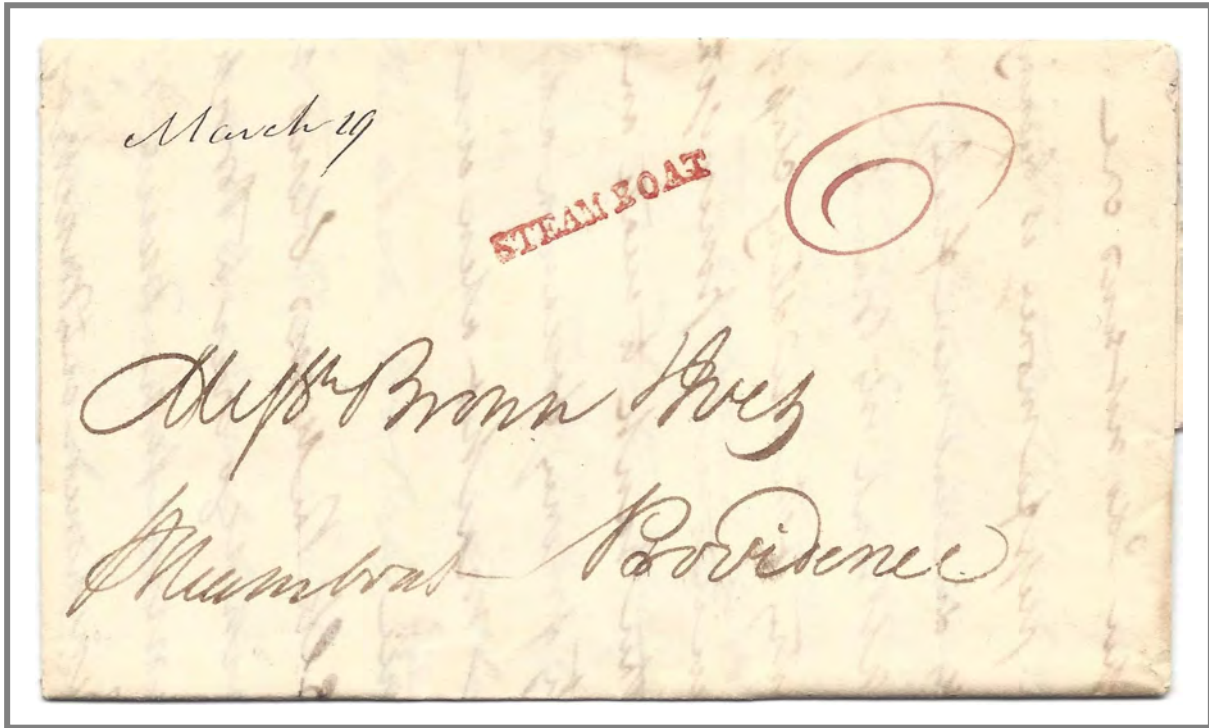 March 19
STEAM BOAT
6
Mess^rs Brown & Ives
Steamboat Providence